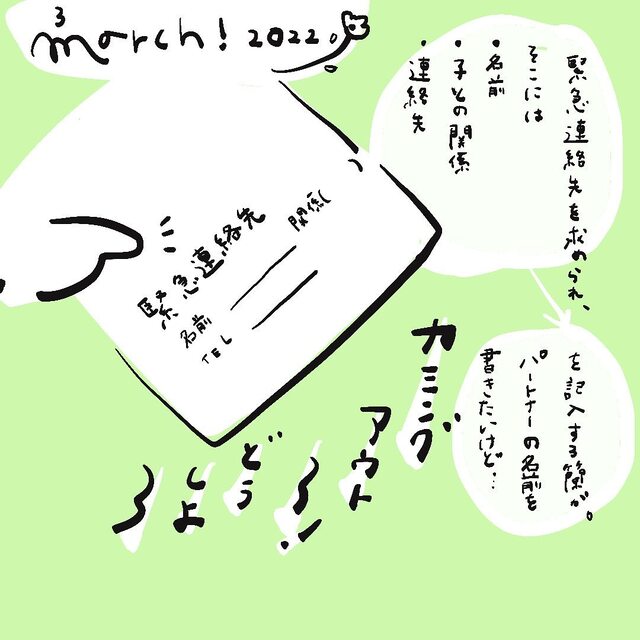 3
march! 2022.
緊急連絡先を求められ、
そこには
・名前
・子との関係
・連絡先
を記入する箇所が。
パートナーの名前を
書きたいけど…
緊急連絡先
関係(
名前
TEL
カミング
アウト
〜!
どう
しよ
〜